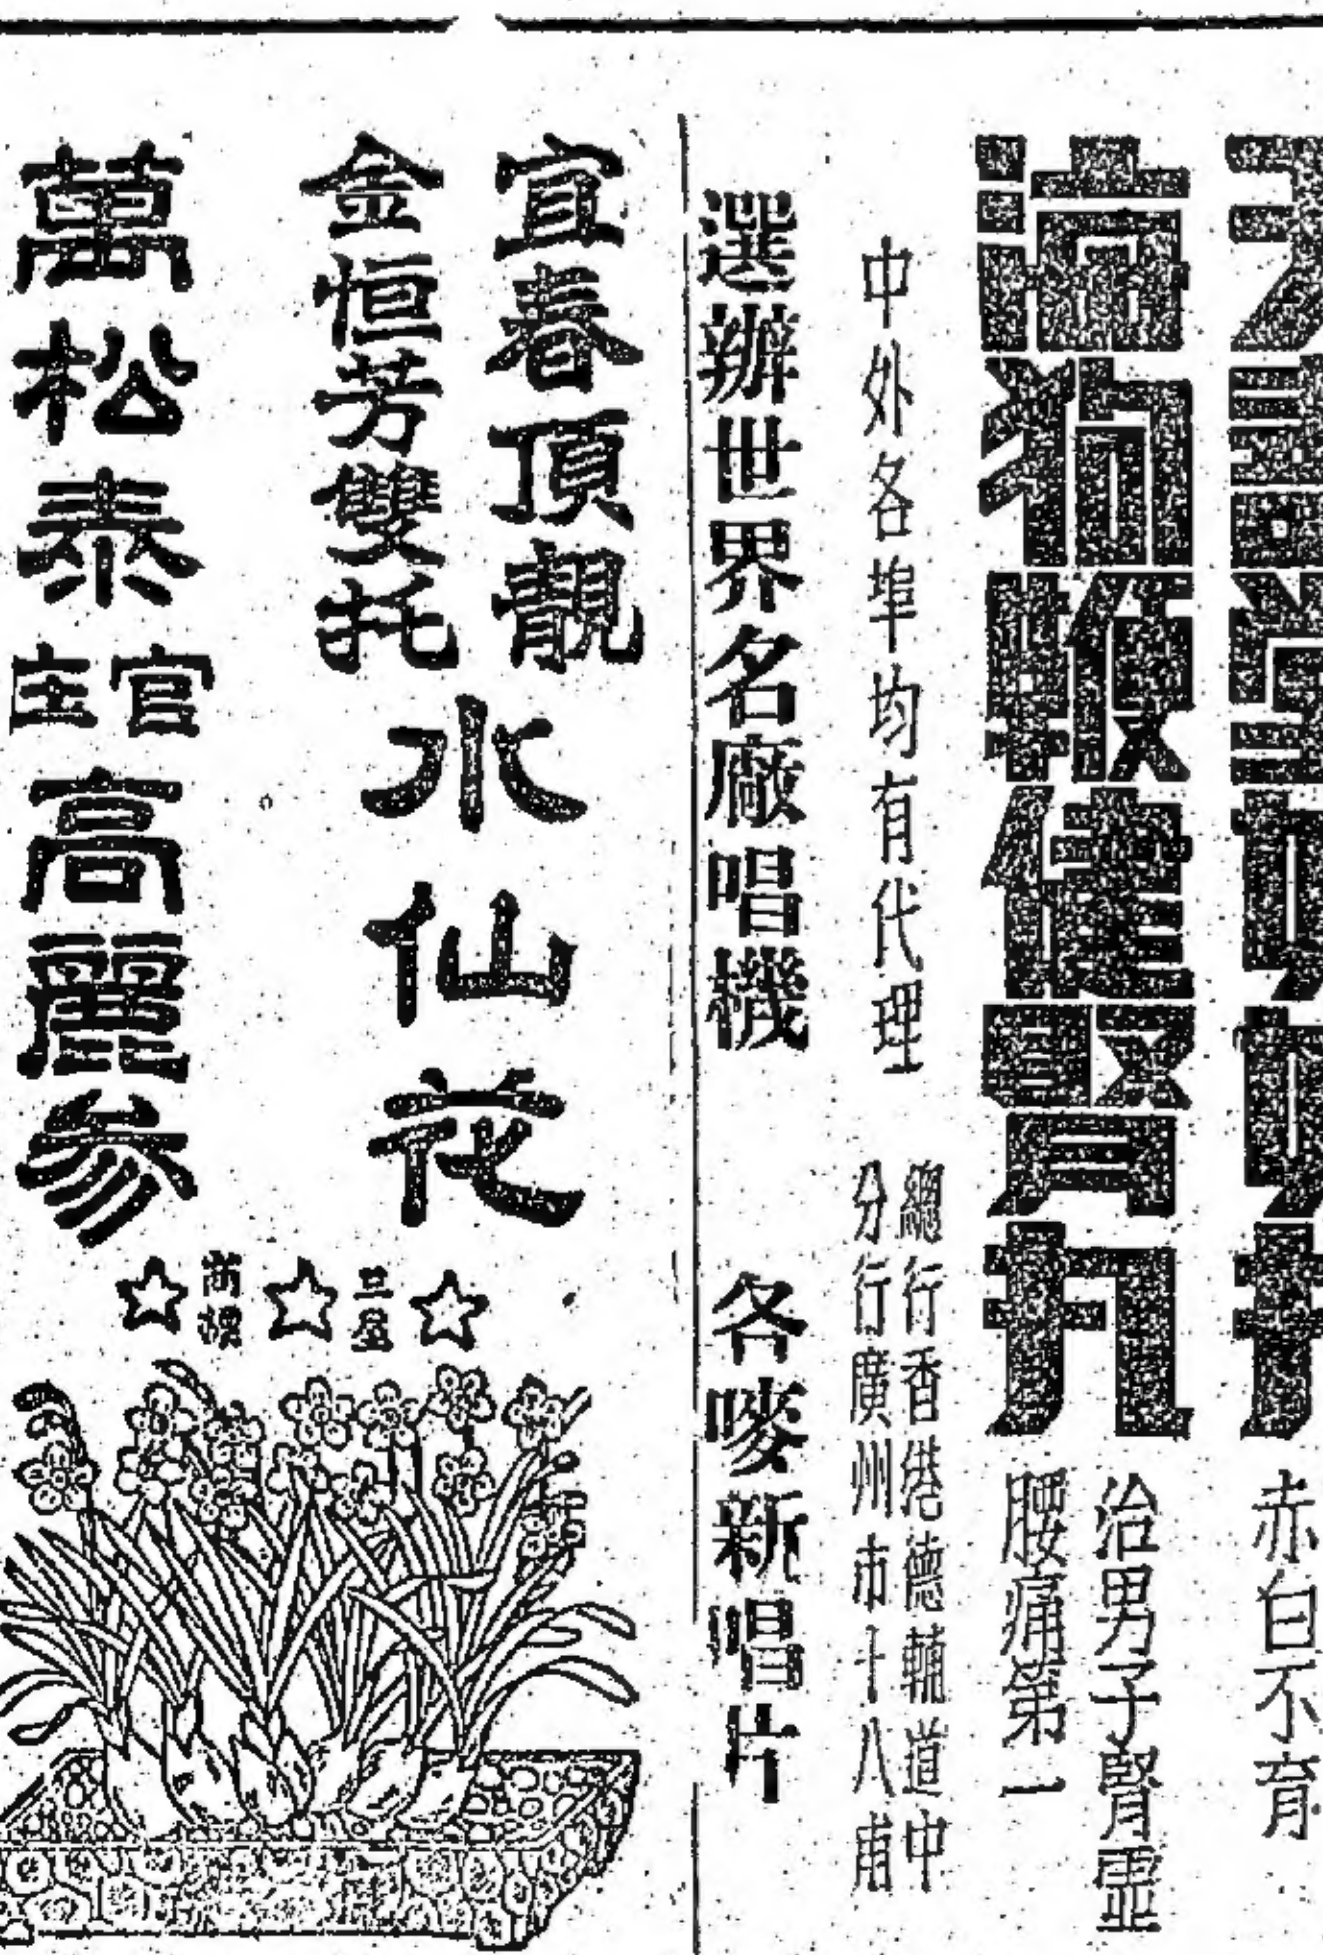 赤白不育
海狗鞭健腎丸
治男子腎虛
腰痛第一
中外各埠均有代理
總行香港德輔道中
分行廣州市十八甫
選辦世界名廠唱機 各嘜新唱片
宜春頂靚
金恒芳雙托
水仙花
萬松泰官庄高麗參
三星
商標